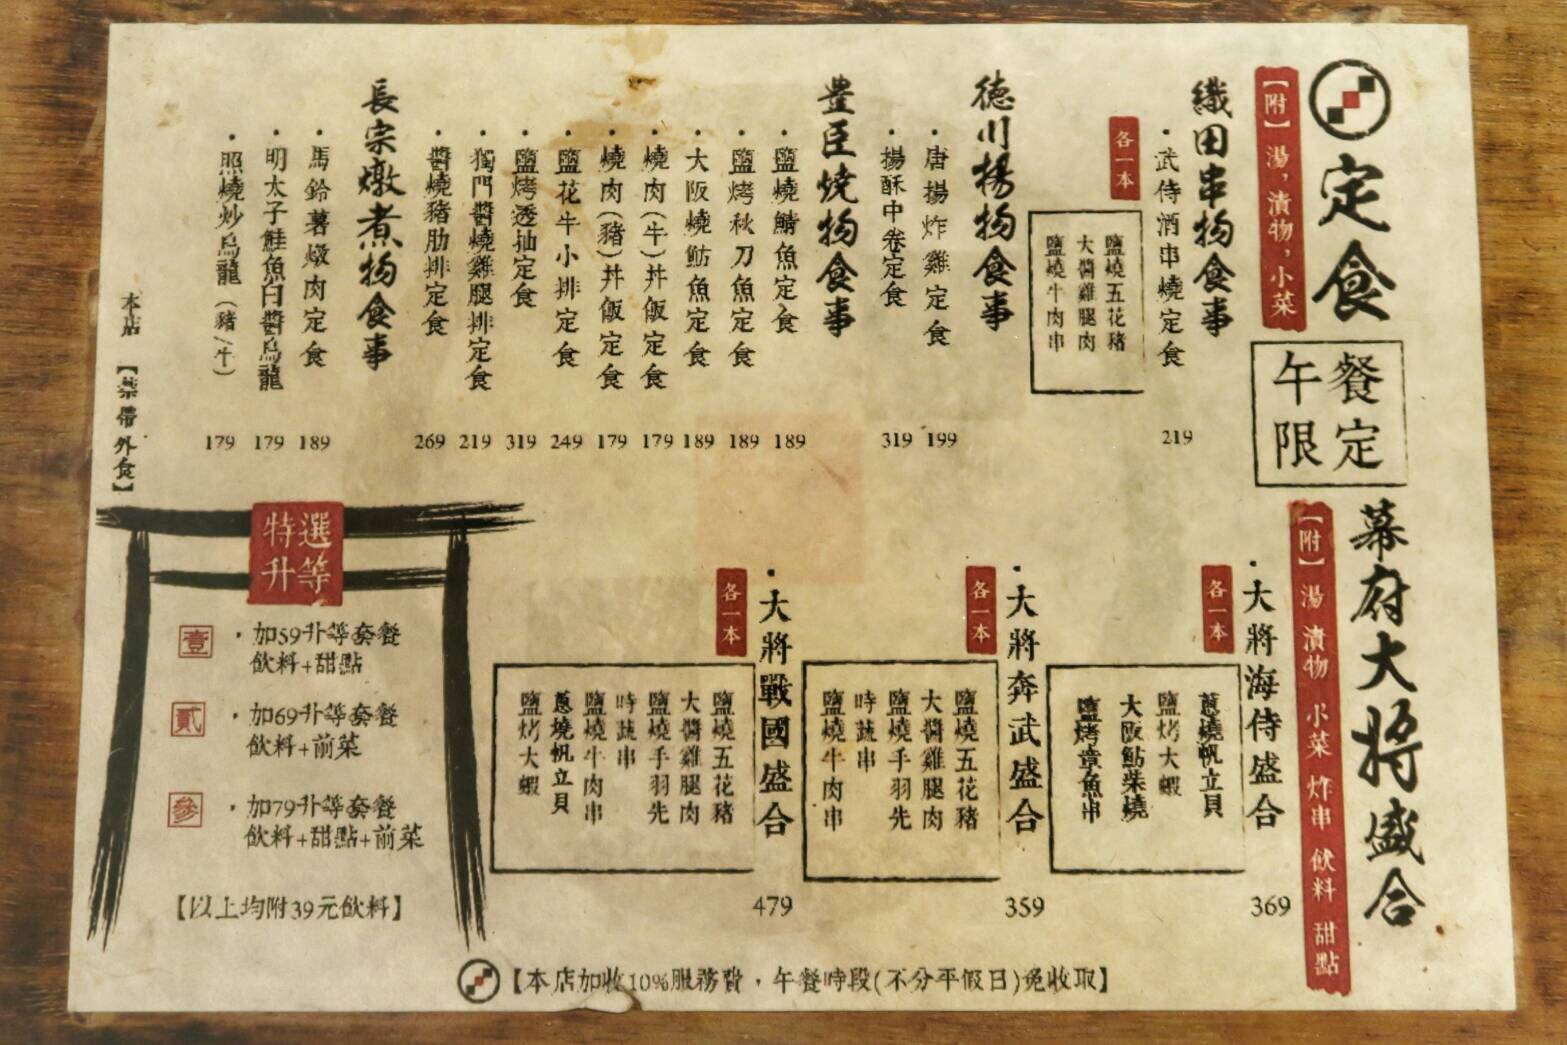 定食
【附】湯，漬物，小菜
餐定
午限
織田串物食事
・武侍酒串燒定食 219
各一本
鹽燒五花豬
大醬雞腿肉
鹽燒牛肉串
德川揚物食事
・唐揚炸雞定食 199
・揚酥中卷定食 319
豊臣燒物食事
・鹽燒鯖魚定食 189
・鹽烤秋刀魚定食 189
・大阪燒魴魚定食 189
・燒肉(牛)丼飯定食 179
・燒肉(豬)丼飯定食 179
・鹽花牛小排定食 249
・鹽烤透抽定食 319
・獨門醬燒雞腿排定食 219
・醬燒豬肋排定食 269
長宗燉煮物食事
・馬鈴薯燉肉定食 189
・明太子鮭魚白醬烏龍 179
・照燒炒烏龍(豬/牛) 179
本店【禁帶外食】
幕府大將盛合
【附】湯 漬物 小菜 炸串 飲料 甜點
・大將海侍盛合 369
各一本
蔥燒帆立貝
鹽烤大蝦
大阪鮎柴燒
鹽烤章魚串
・大將奔武盛合 359
各一本
鹽燒五花豬
大醬雞腿肉
鹽燒手羽先
時蔬串
鹽燒牛肉串
・大將戰國盛合 479
各一本
鹽燒五花豬
大醬雞腿肉
鹽燒手羽先
時蔬串
鹽燒牛肉串
蔥燒帆立貝
鹽烤大蝦
選等
特升
壹 ・加59升等套餐
飲料+甜點
貳 ・加69升等套餐
飲料+前菜
參 ・加79升等套餐
飲料+甜點+前菜
【以上均附39元飲料】
【本店加收10%服務費，午餐時段(不分平假日)免收取】